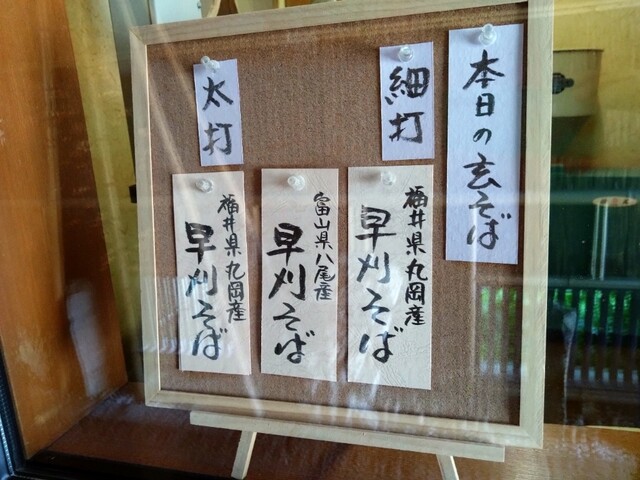 本日の玄そば
細打
福井県丸岡産
早刈そば
富山県八尾産
早刈そば
太打
福井県丸岡産
早刈そば